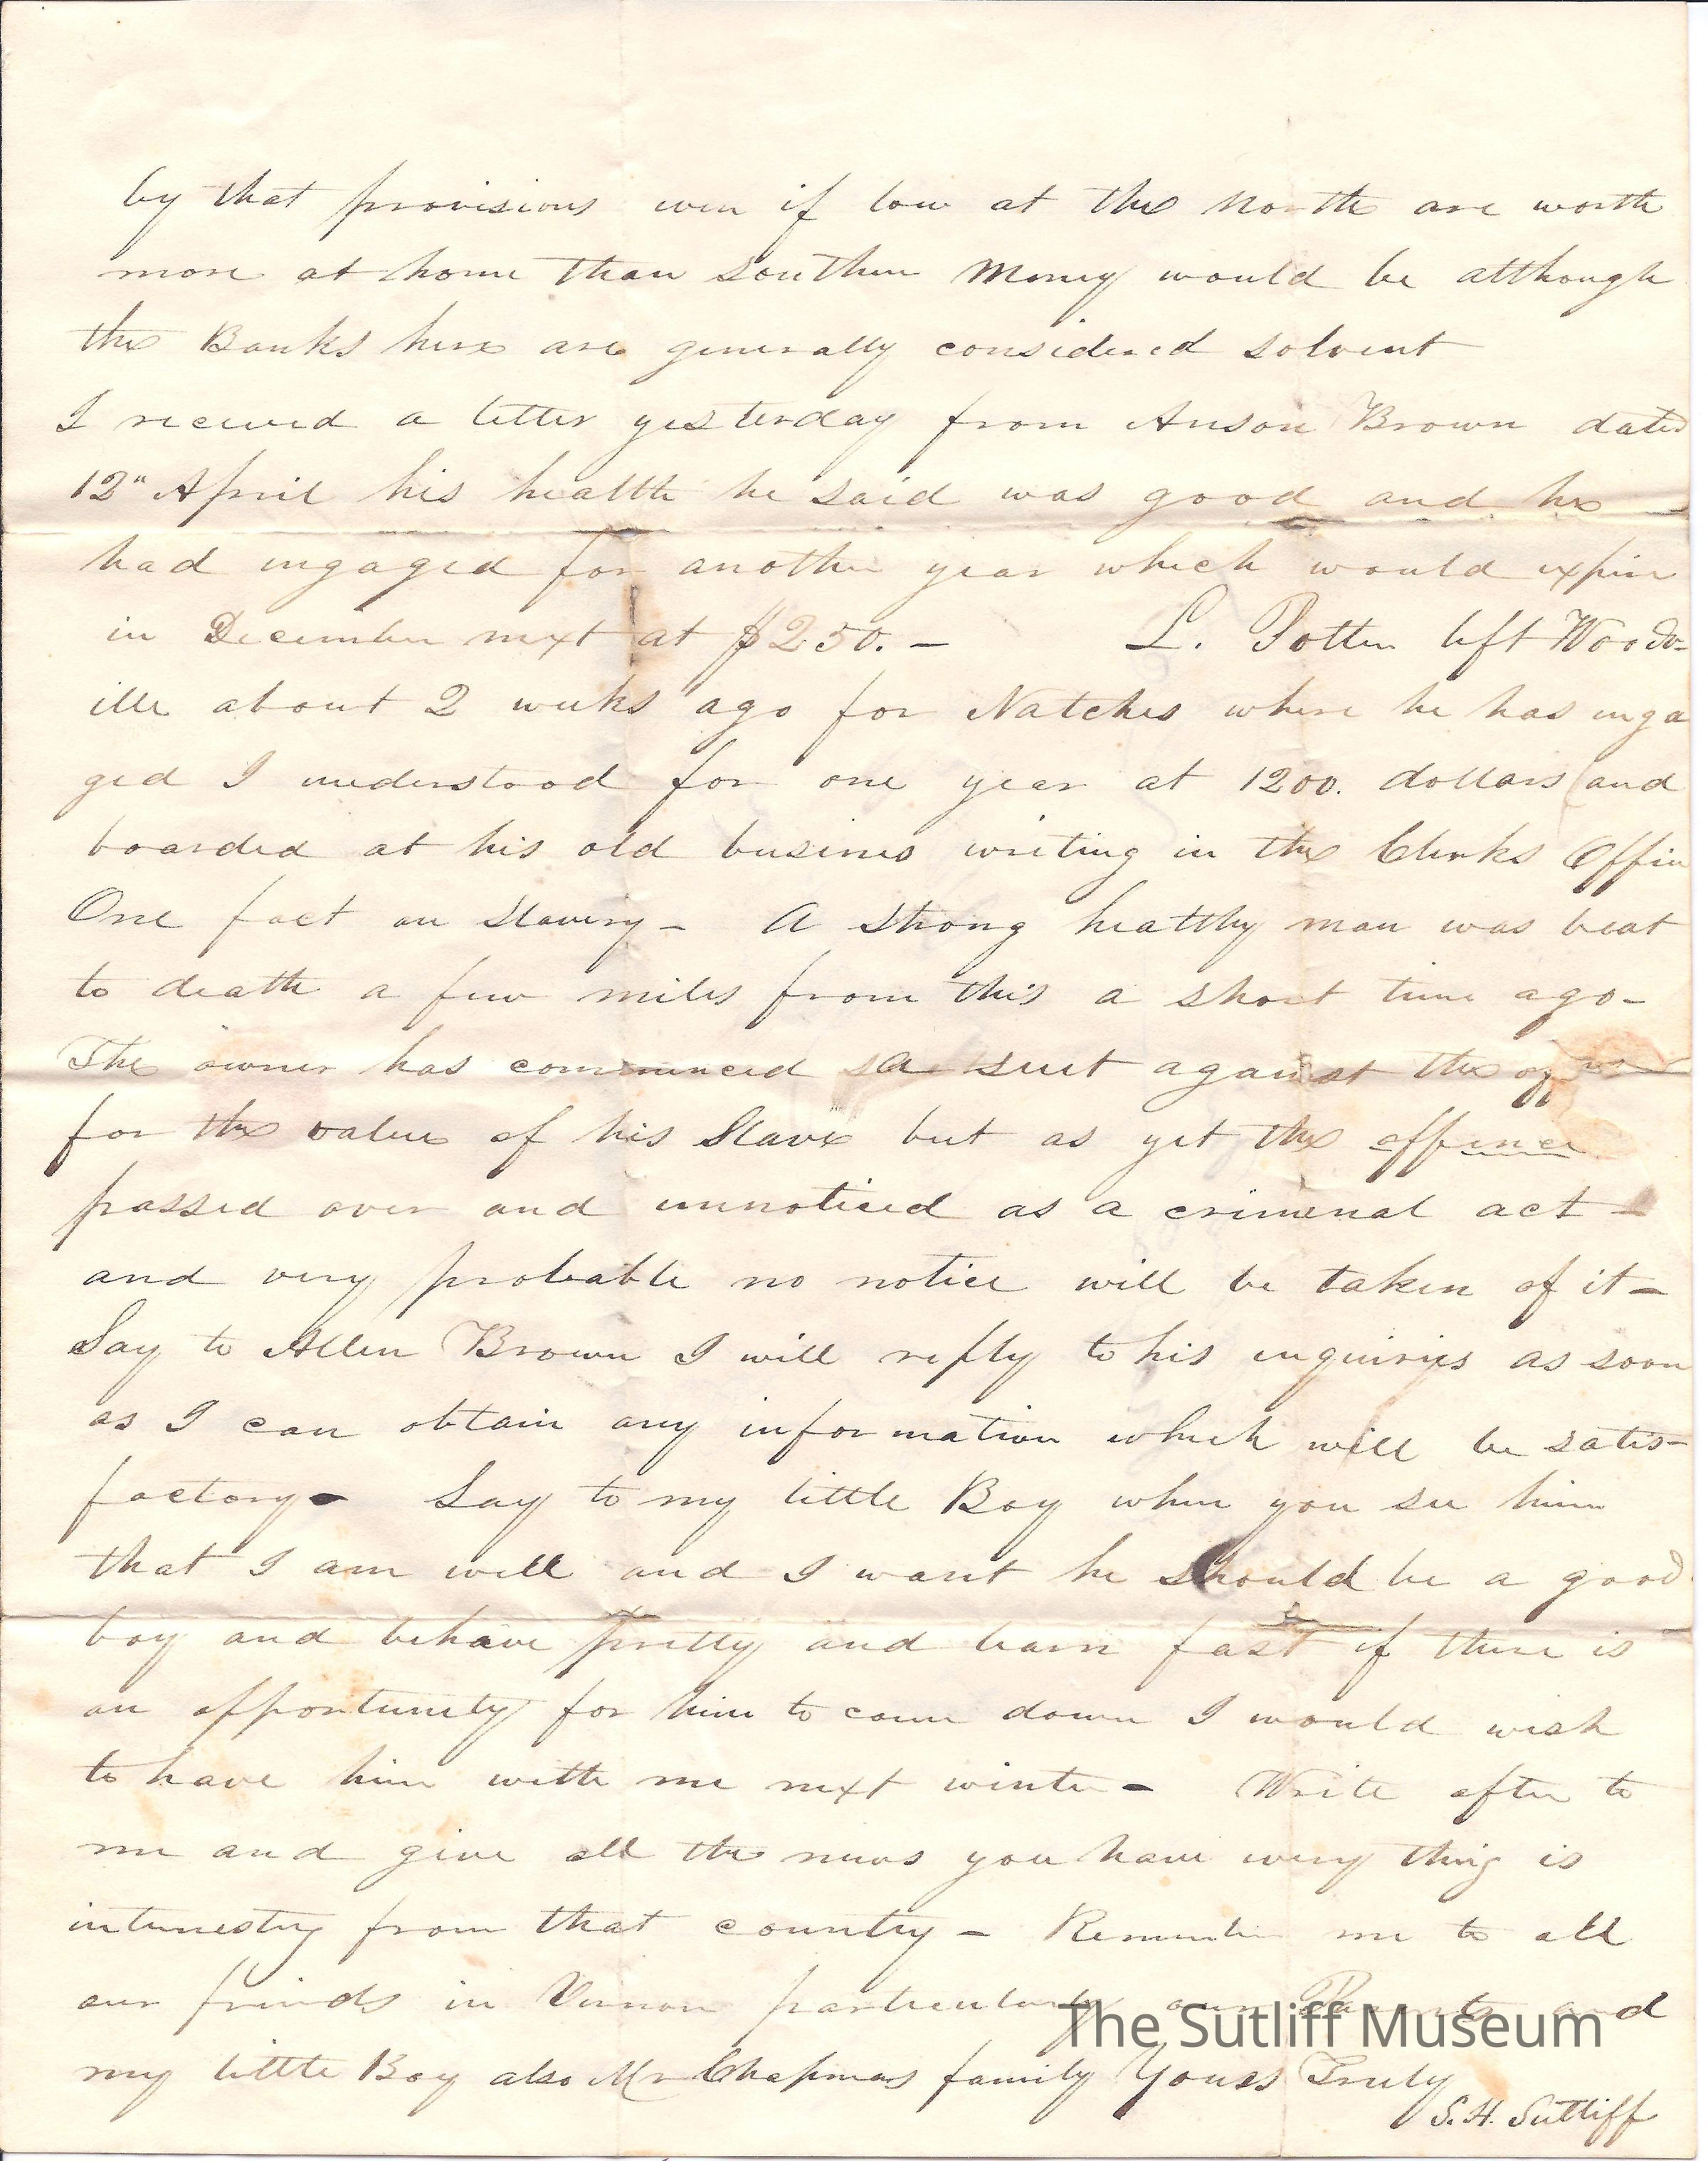 by that provisions even if low at the North are worth
more at home than southern Money would be although
the Banks here are generally considered solvent
I received a letter yesterday from Anson Brown dated
12" April his health he said was good and he
had engaged for another year which would expire
in December next at $250. –       L. Potter left Woodv-
ille about 2 weeks ago for Natches where he has enga
ged I understood for one year at 1200. dollars (and
boarded at his old business writing in the Clerks Office
One fact on Slavery – A strong healthy man was beat
to death a few miles from this a short time ago –
The owner has commenced a suit against the
for the value of his Slave but as yet the offence
passed over and unnoticed as a criminal act –
and very probable no notice will be taken of it –
Say to Allen Brown I will reply to his enquiries as soon
as I can obtain any information which will be satis-
factory – Say to my little Boy when you see him
that I am well and I want he should be a good
boy and behave pretty and learn fast if there is
an opportunity for him to come down I would wish
to have him with me next winter – Write often to
me and give all the news you have every thing is
interesting from that country – Remember me to all
our friends in Vernon particularly our Parents and
my little Boy also Mr Chapmans family Yours Truly
S. H. Sutliff
The Sutliff Museum